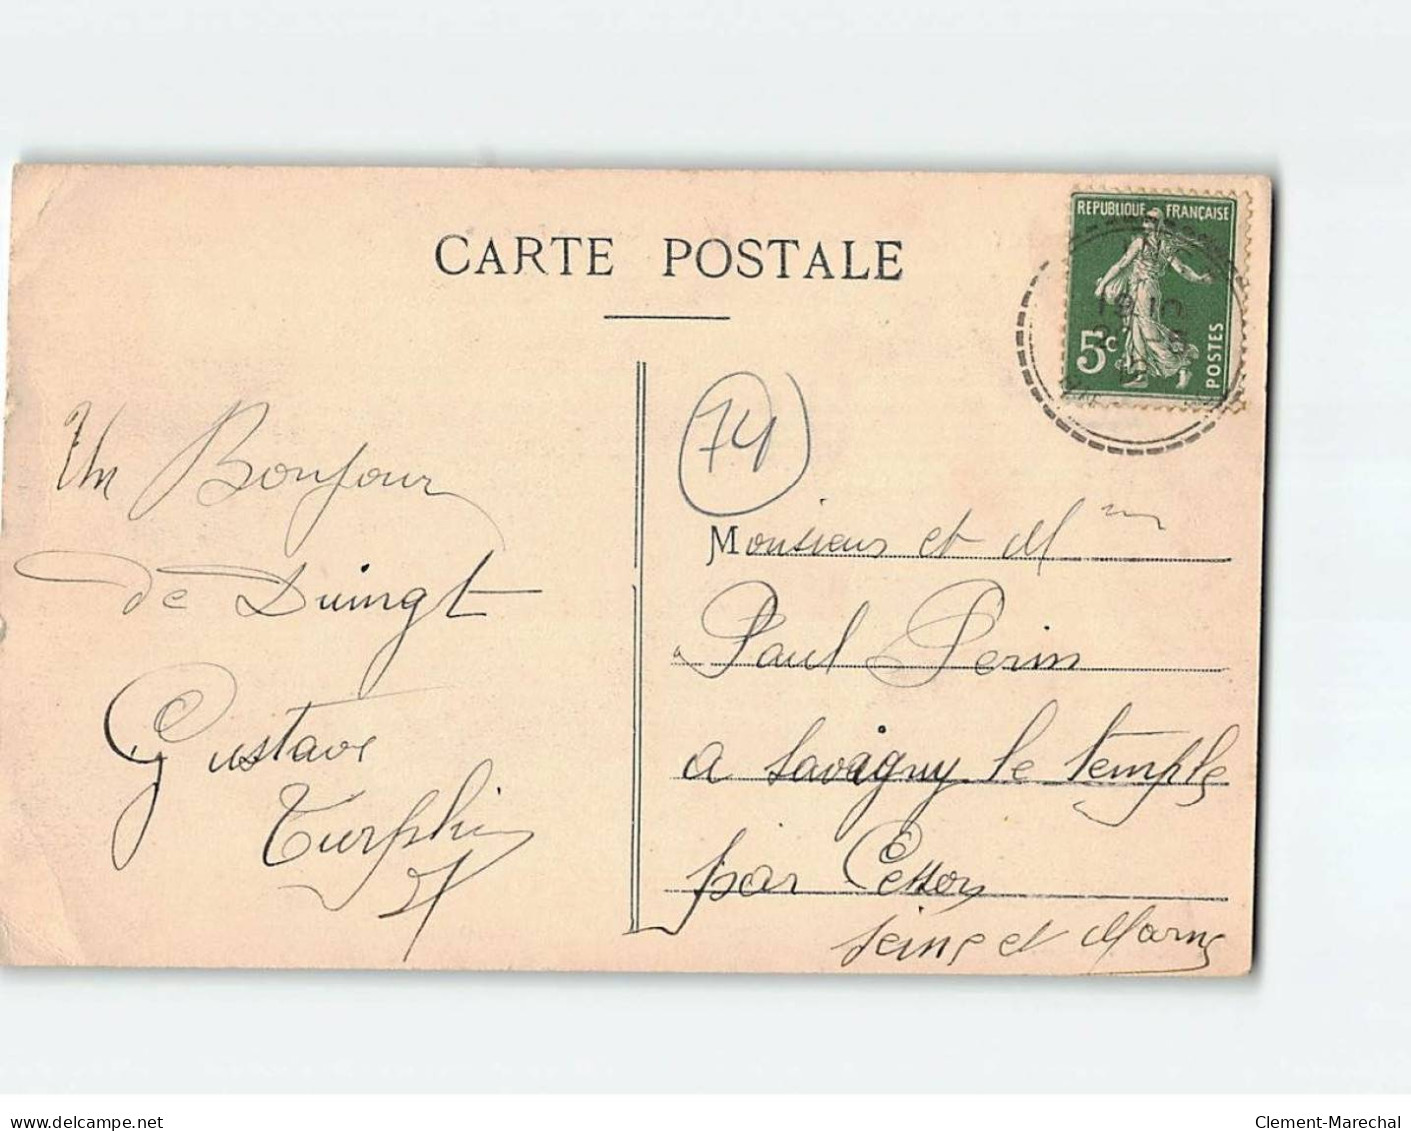 CARTE POSTALE
REPUBLIQUE FRANÇAISE
5c
POSTES
74
Un Bonjour
de Duingt
Gustave
Monsieur et Mme
Paul Perin
a Savigny le temple
par Cesson
Seine et Marne
www.delcampe.net
Clement-Marechal